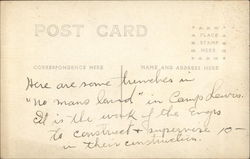 POST CARD
PLACE
STAMP
HERE
CORRESPONDENCE HERE
NAME AND ADDRESS HERE
Here are some trenches in
"no mans land" in Camp Lewis.
It is the work of the Engrs
to construct & supervise
in their construction.